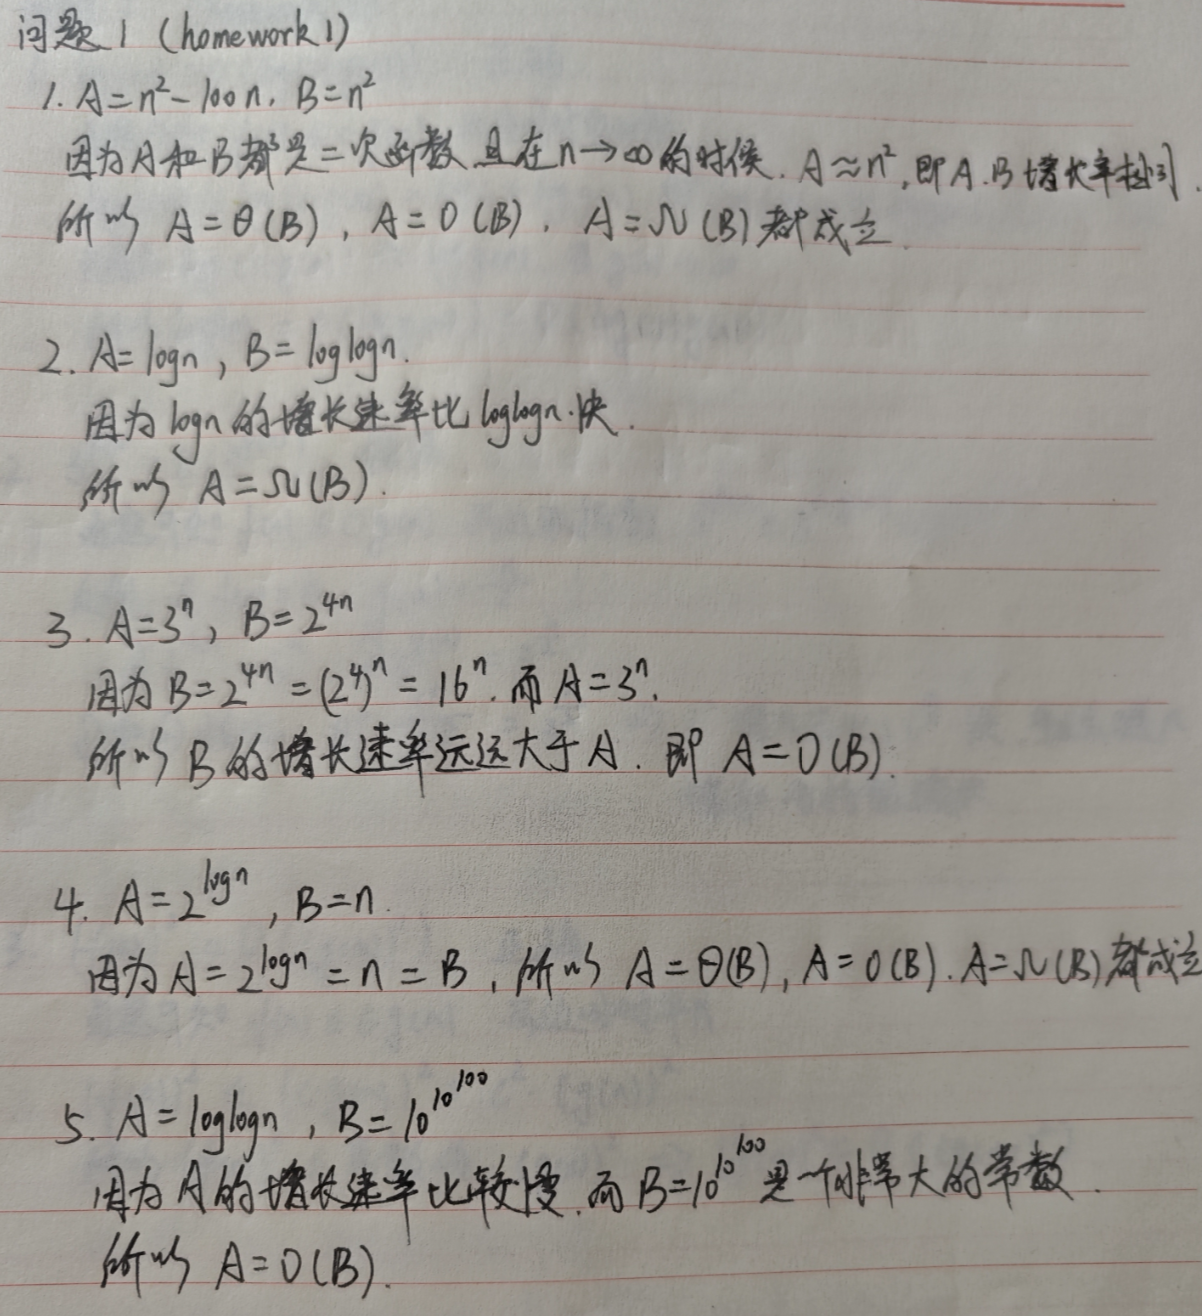 问题1 (homework1)
1. A=n²-100n, B=n²
因为A和B都是二次函数 且在n→∞的时候. A≈n², 即A.B增长率相同.
所以 A=θ(B), A=O(B), A=Ω(B)都成立.
2. A=logn, B=loglogn.
因为logn的增长速率比loglogn.快.
所以 A=Ω(B).
3. A=3ⁿ, B=2⁴ⁿ
因为B=2⁴ⁿ=(2⁴)ⁿ=16ⁿ. 而A=3ⁿ.
所以B的增长速率远远大于A. 即 A=O(B).
4. A=2^logn, B=n.
因为A=2^logn=n=B, 所以 A=θ(B), A=O(B). A=Ω(B)都成立
5. A=loglogn, B=10^10^100
因为A的增长速率比较慢,而B=10^10^100是一个非常大的常数.
所以 A=O(B).